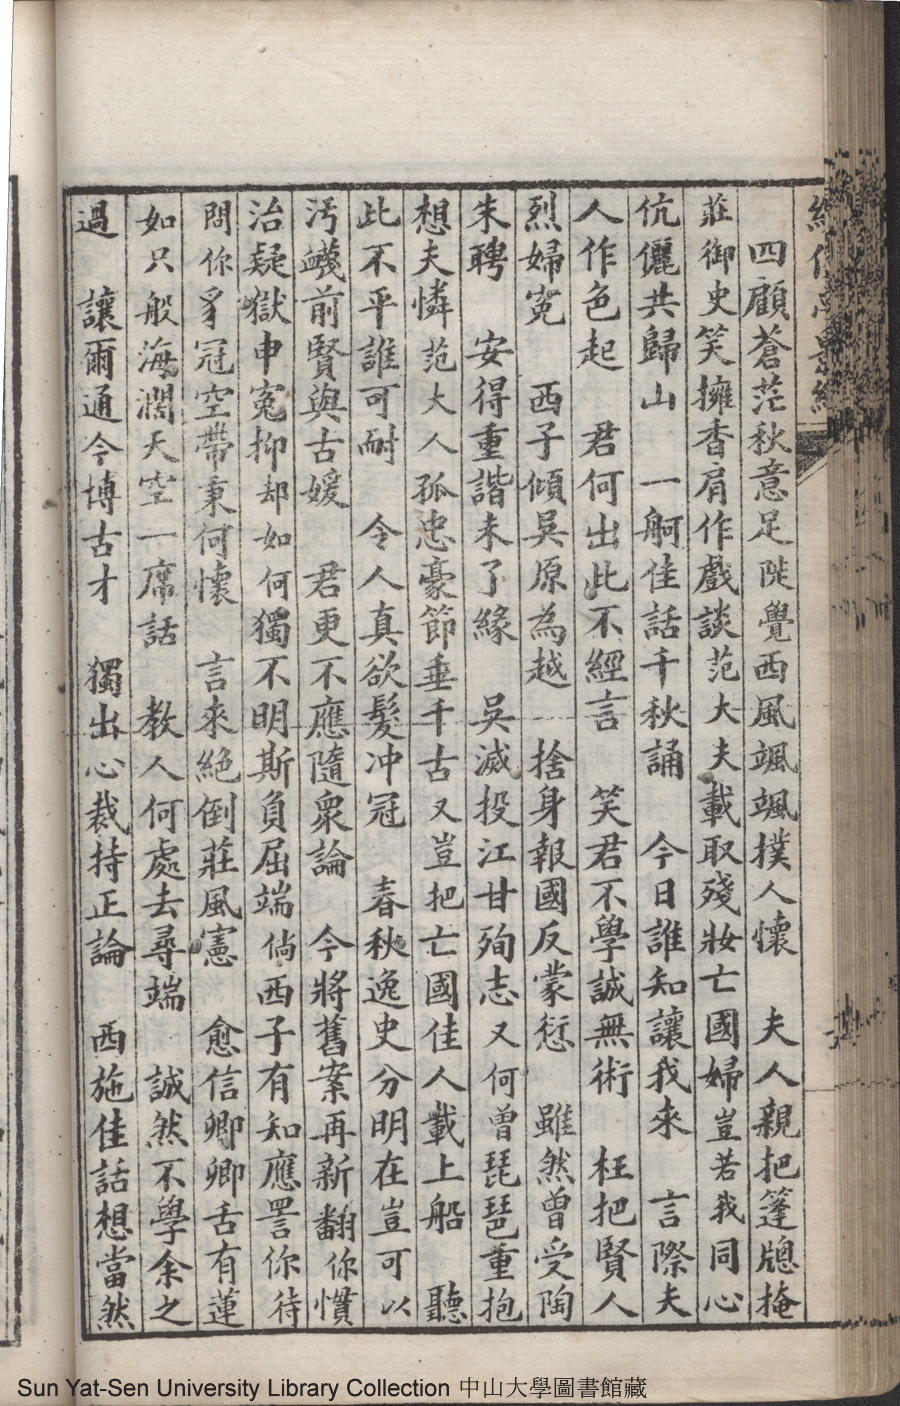 四顧蒼茫秋意足陡覺西風颯颯撲人懷　夫人親把篷牕掩
莊御史笑擁香肩作戲談范大夫載取殘妝亡國婦豈若我同心
伉儷共歸山　一舸佳話千秋誦　今日誰知讓我來　言際夫
人作色起　君何出此不經言　笑君不學誠無術　枉把賢人
烈婦寃　西子傾吳原為越　捨身報國反蒙愆　雖然曾受陶
朱聘　安得重諧未了緣　吳滅投江甘殉志又何曾琵琶重抱
想夫憐　范大人孤忠豪節垂千古又豈把亡國佳人載上船　聽
此不平誰可耐　令人真欲髮冲冠　春秋逸史分明在豈可以
汚衊前賢與古媛　君更不應隨衆論　今將舊案再新翻你慣
治疑獄申寃抑却如何獨不明斯負屈端倘西子有知應詈你待
問你豸冠空帶秉何懷　言來絕倒莊風憲　愈信卿卿舌有蓮
如只般海濶天空一席話　教人何處去尋端　誠然不學余之
過　讓爾通今博古才　獨出心裁持正論　西施佳話想當然
Sun Yat-Sen University Library Collection 中山大學圖書館藏